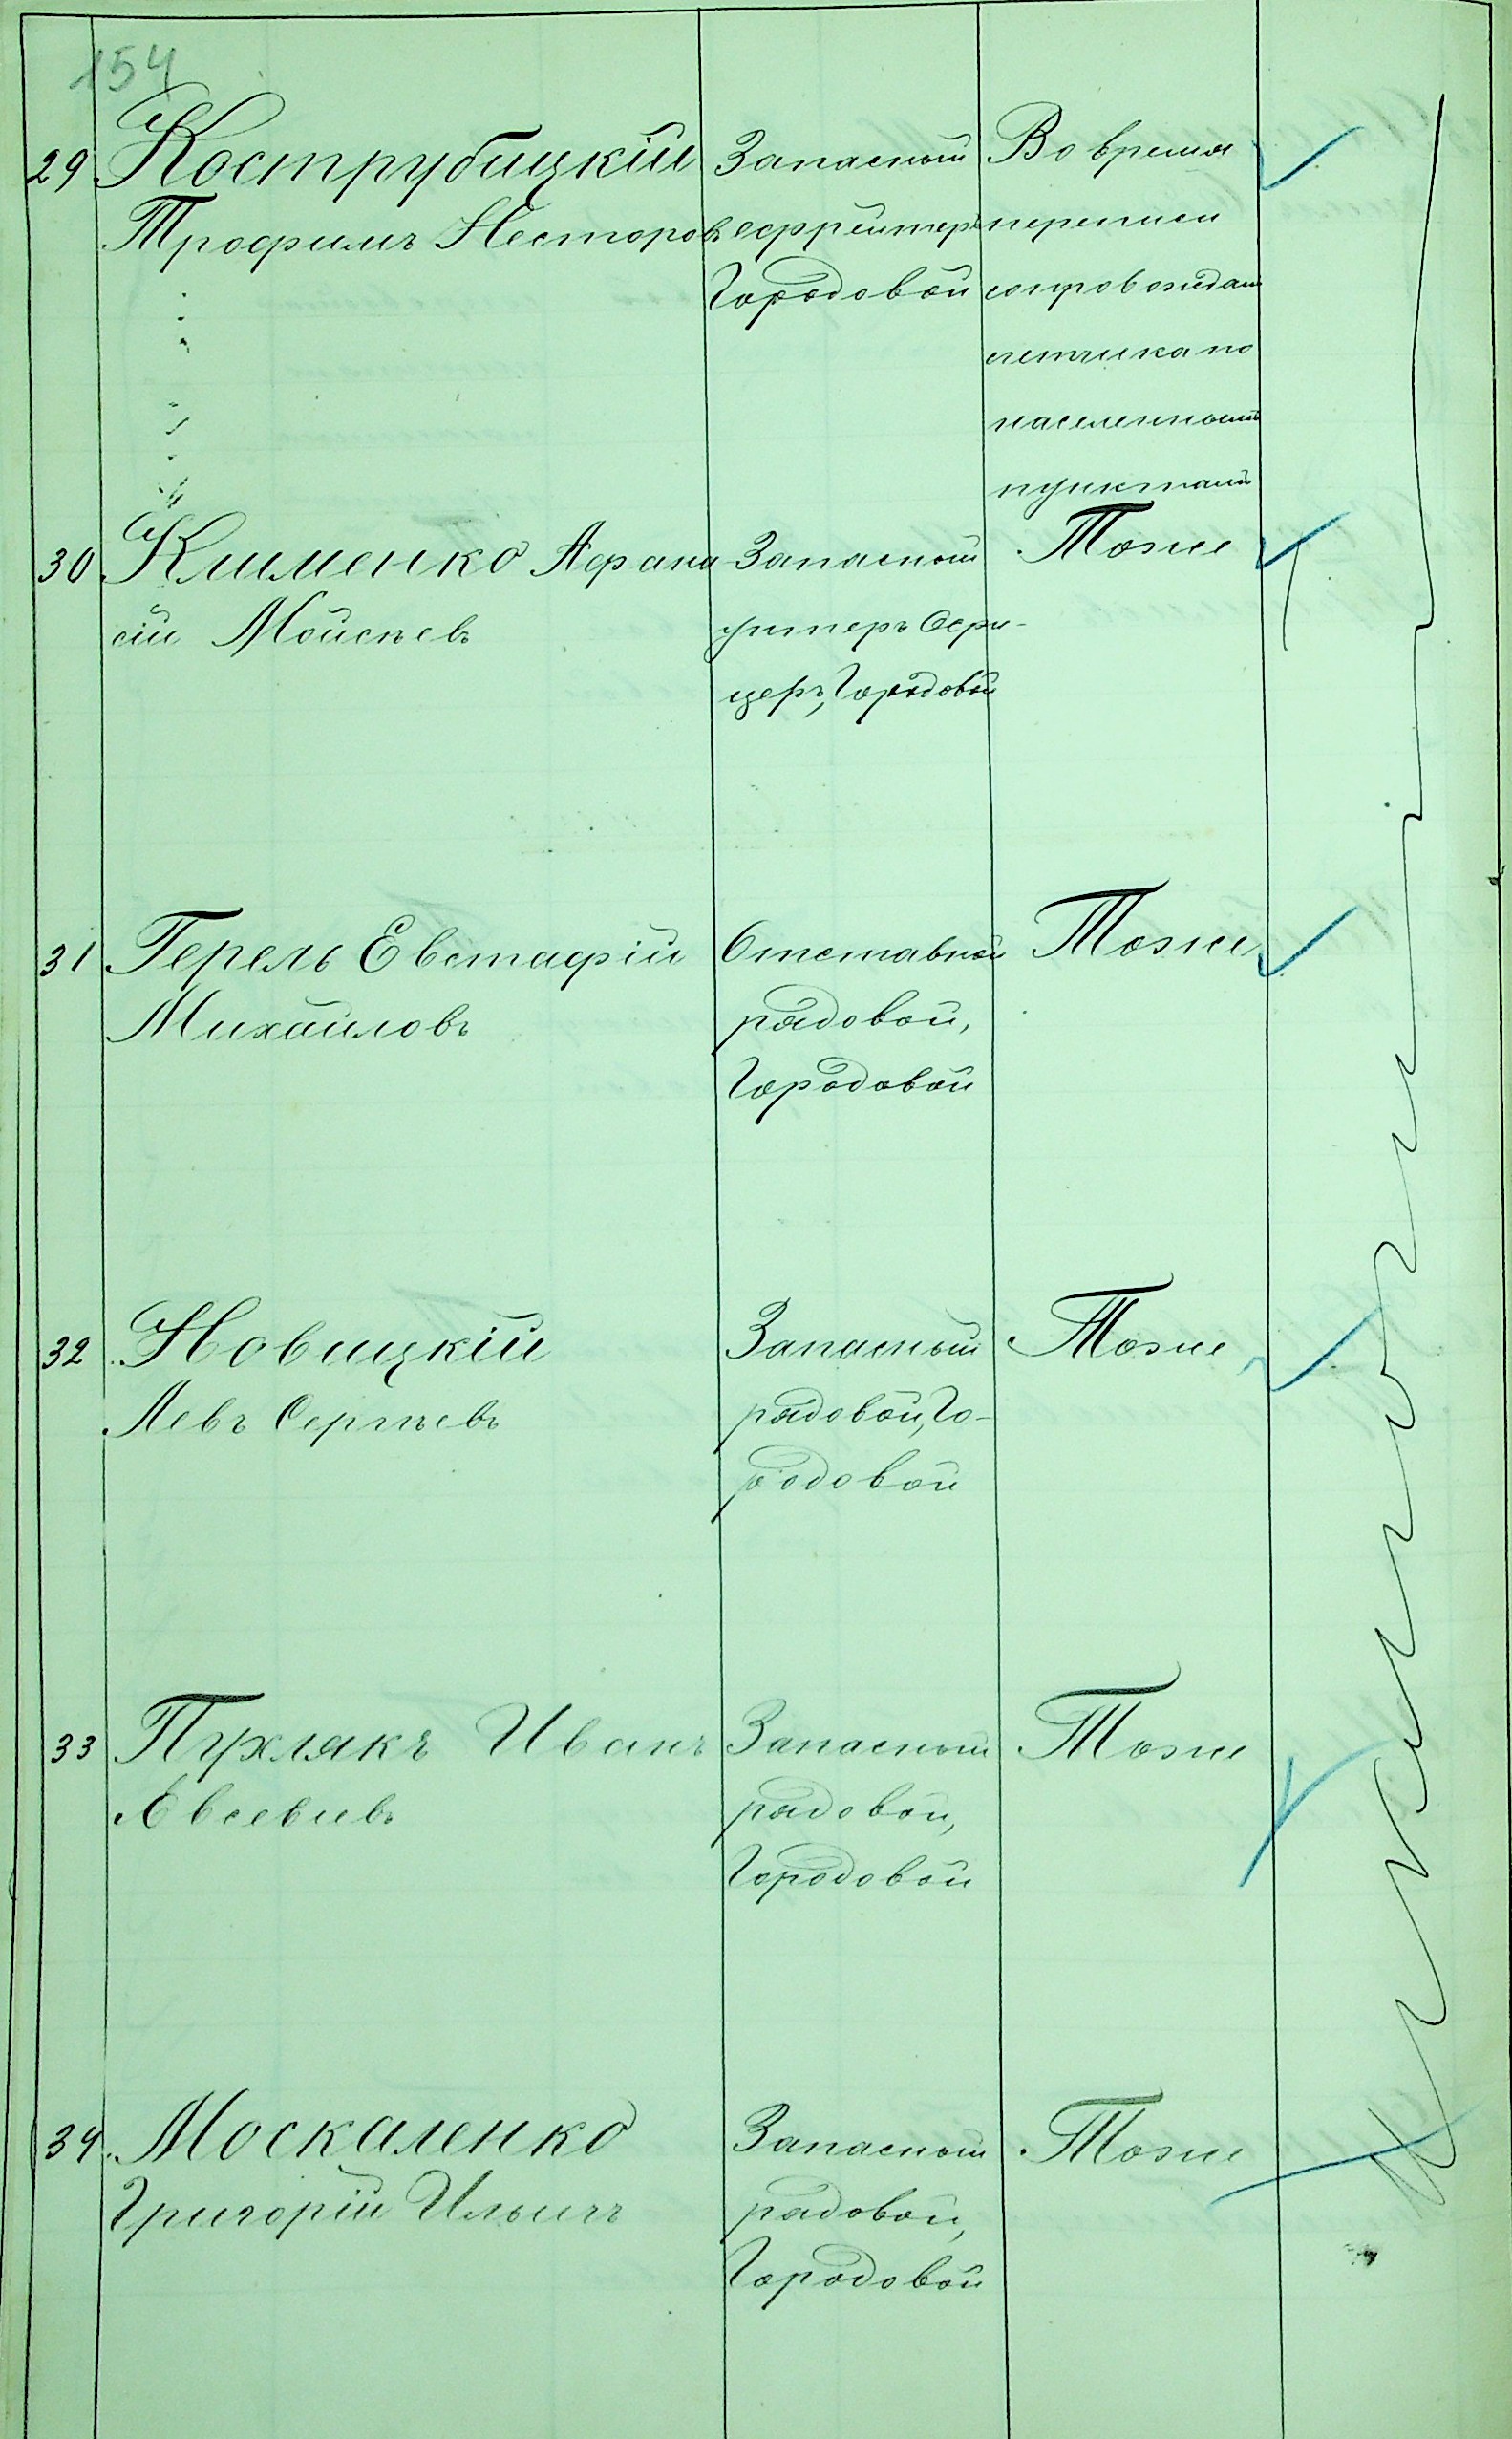 154
29 Кострубицкій Запасный Во время
Трофимъ Несторовъ ефрейторъ переписи
Городовой сопровождалъ
счетчика по
населеннымъ
пунктамъ
30 Клименко Афана Запасный Тоже
сій Мойсѣевъ унтеръ Офи-
церъ, Городовой
31 Герель Евстафій Отставной Тоже
Михайловъ рядовой,
Городовой
32 Новицкій Запасный Тоже
Левъ Сергѣевъ рядовой, Го-
родовой
33 Пухлякъ Иванъ Запасный Тоже
Евсевіевъ рядовой,
Городовой
34 Москаленко Запасный Тоже
Григорій Ильичъ рядовой,
Городовой